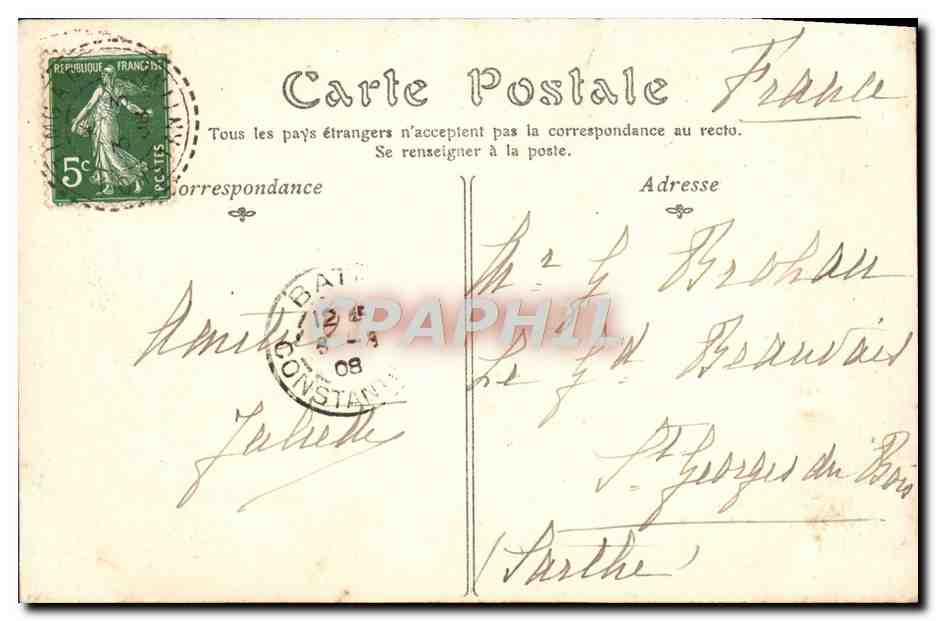 RÉPUBLIQUE FRANÇAISE
5c
POSTES
Carte Postale
France
Tous les pays étrangers n'acceptent pas la correspondance au recto.
Se renseigner à la poste.
Correspondance
Adresse
BAT
12
08
CONSTANT
CPAPHIL
Juliette
Mr G Brohan
Le Gd Beauvais
St Georges du Bois
(Sarthe)